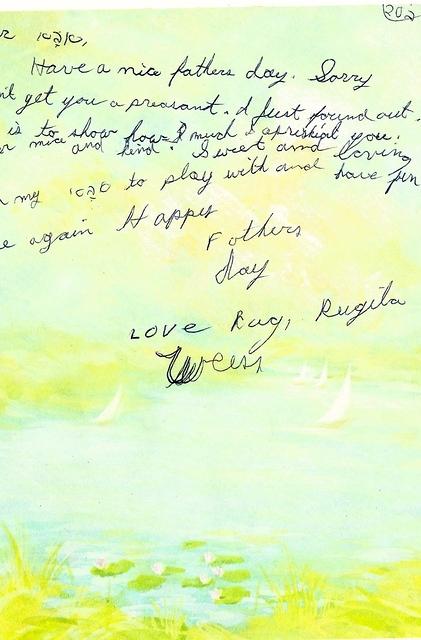 סבא,
Have a nice fathers day. Sorry
get you a preasant. I just found out.
is to show how I much I apriskiat you.
nice and kind. Sweet and loving
my סבא to play with and have fun
again Happy
Fathers
Day
Love Rug, Rugila
Weiss